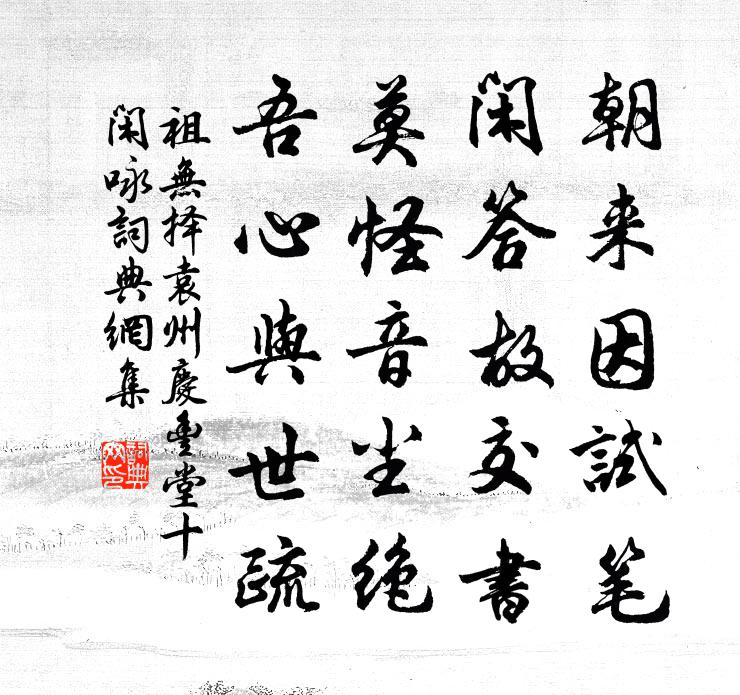 朝来因試笔
閑答故交書
莫怪音尘绝
吾心與世疏
祖無择袁州慶豐堂十
閑咏詞典網集